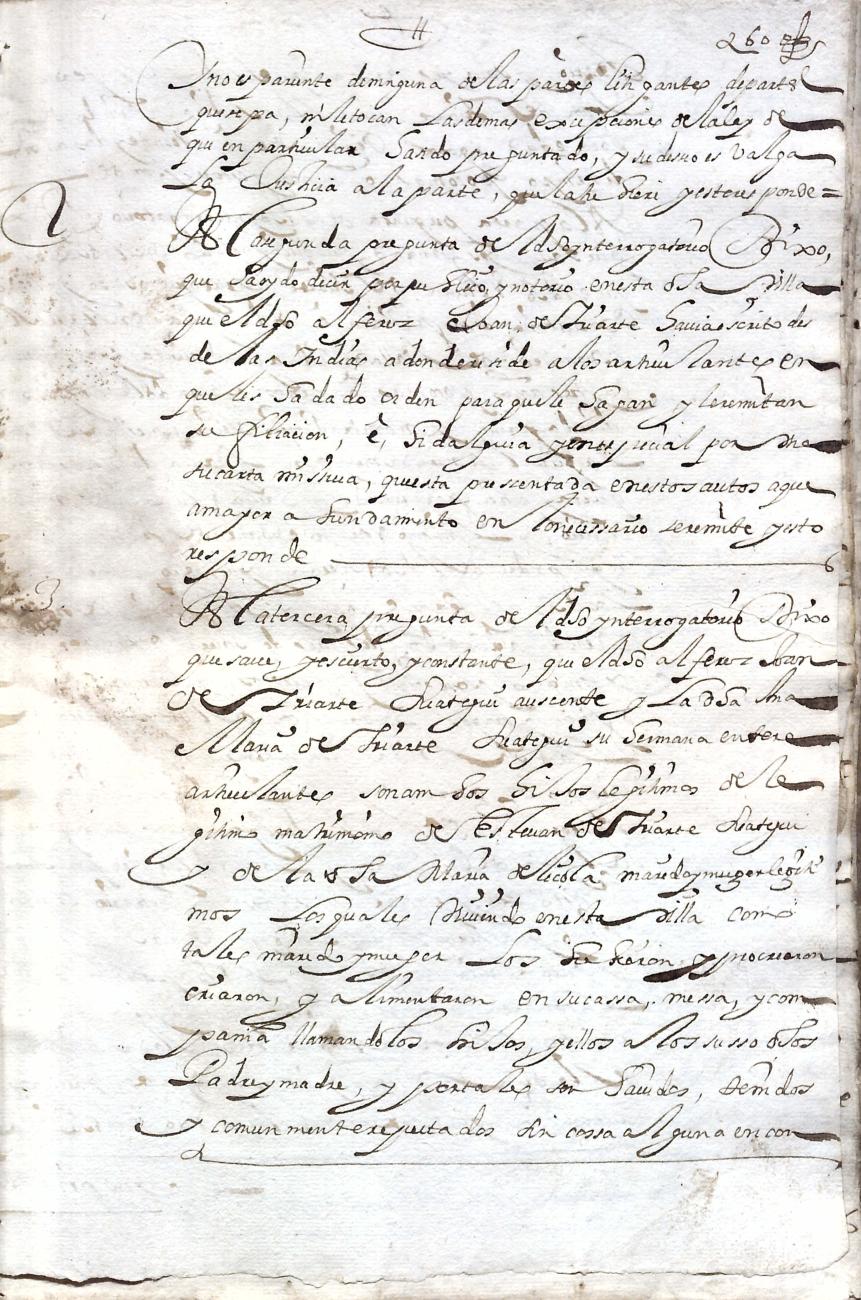 260
y no es pariente de ninguna de las partes litigantes de parte
que sepa, ni le tocan las demas excepciones de la ley de
que en particular ha sido preguntado, y su deseo es valga
la Justicia a la parte, que la tubiere y esto responde =
2
A la segunda pregunta del dho ynterrogatorio Dixo,
que ha oydo decir por publico, y notorio en esta dha Villa
que el dho alferez Joan de Yriarte havia escrito des
de las Indias adonde reside a los articulantes en
que les ha dado orden para que le hagan y le remitan
su filiacion, e, hidalguia y en especial por una
su carta missiva, que esta pressentada en estos autos a que
a mayor a fundamento en lo necessario se remite y esto
responde
3
A la tercera pregunta del dho ynterrogatorio Dixo
que save, y es cierto, y constante, que el dho alferez Joan
de Yriarte auscente y la dha Ana
Maria de Yriarte su hermana entera
articulantes son ambos hijos legitimos de le
gitimo matrimonio de Estevan de Yriarte
y de la dha Maria de marido y muger legiti
mos los quales viviendo en esta Villa como
tales marido y muger los hubieron, y procrearon
criaron, y alimentaron en su cassa, messa, y com
pania llamandolos hijos, y ellos a los susso dhos
Padre y madre, y por tales son havidos, tenidos
y comunmente reputados sin cossa alguna en con